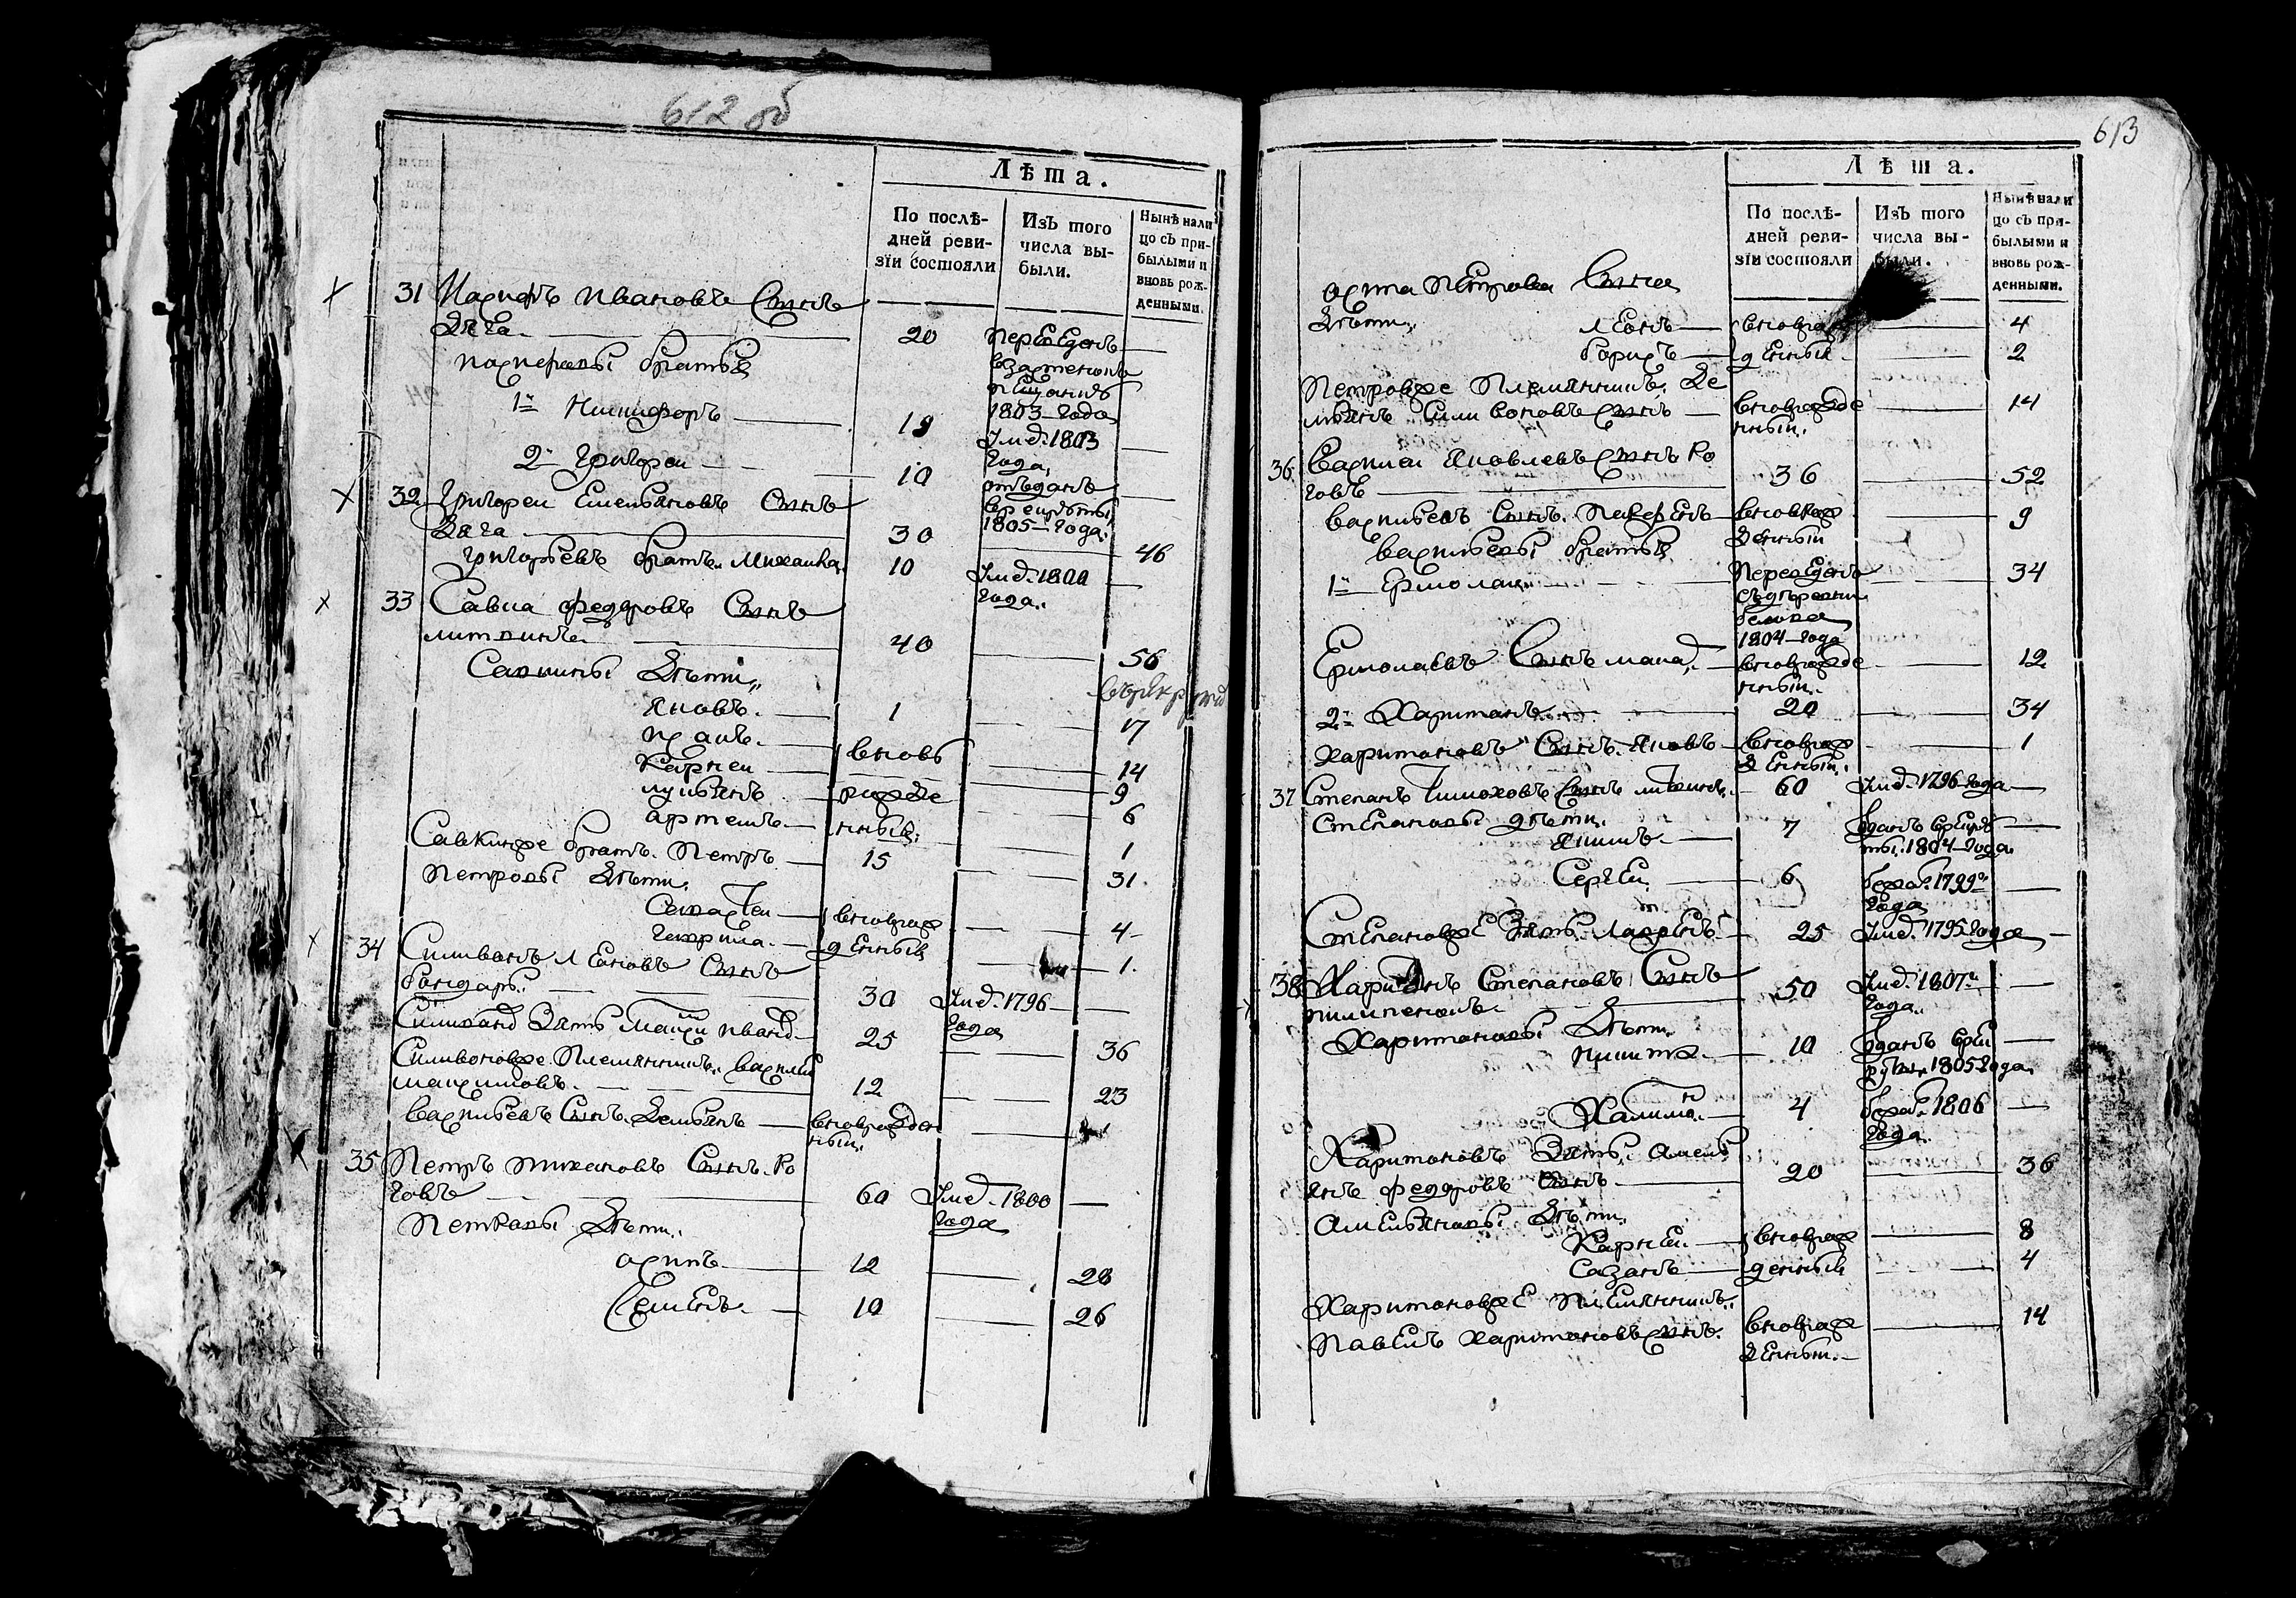 612 об
Лѣта.
По послѣ-
дней реви-
зїи состояли
Изъ того
числа вы-
были.
Нынѣ нали
цо съ при-
былыми и
вновь рож-
денными.
31 Иванов Сынъ
20
братья
1й Никифоръ
19
1803 года
Умер. 1803
года,
2й Григореи
10
отъданъ
в рекруты
1805 года.
32 Григореи Емельяновъ Сынъ
30
46
Григорьевъ братъ Михаила
10
Умер. 1800
года.
33 Савка Федоровъ Сынъ
литвинъ
40
56
Савкины Дѣти
Яковъ
1
17
Исакъ
вновь
14
Карнеи
9
лукьянъ
рожде
6
артемъ
нныя
1
Савкинже братъ Петръ
15
31
Петровы Дѣти
вновьрож
4
Гаврила
денныя
1
34 Силивонъ Леоновъ Сынъ
бондарь
30
Умер. 1796
года
25
36
Силивоновже Племянникъ васили
максимовъ
12
23
васильевъ Сынъ Демьянъ
вноврожден
ныи
35 Петръ Тихановъ Сынъ Ко
говъ
60
Умер. 1800
года
Петровы Дѣти
осипъ
12
28
Семенъ
10
26
613
Лѣта.
По послѣ-
дней реви-
зїи состояли
Изъ того
числа вы-
были.
Нынѣ нали
цо съ при-
былыми и
вновь рож-
денными.
осипа Петрова Сына
Дѣти
Леонъ
вноврож
4
борисъ
денныя
2
Петровже Племянникъ Де
мьянъ Силивоновъ Сынъ
вноврожде
нныи
14
36 Василеи Яковлевъ Сынъ Ко
говъ
36
52
васильевъ Сынъ
вноврож
денныи
9
васильевы братья
1й Ермолаи
34
1804 года
Ермолаевъ Сынъ
вноврожде
нныи
12
2й Харитонъ
20
34
Харитоновъ Сынъ Яковъ
вноврож
денныи
1
37 Степанъ Тимоховъ Сынъ литвинъ
60
Умер. 1796 года
Степановы дѣти
Якимъ
7
Отданъ врекру
ты 1804 года
Сергеи
6
бежал 1799го
года
Степановже Зять
25
Умер. 1795 года
38 Харитонъ Степановъ Сынъ
50
Умер. 1807го
года
Харитоновы Дѣти
Никита
10
Отданъ врек
руты 1805 года
4
бежал 1806
года
Харитоновъ Зять амель
янъ федоровъ Сынъ
20
36
амельяновы Дѣти
Карнеи
вноврож
8
Сазонъ
денныя
4
Харитоновже Племянникъ
Павелъ Харитоновъ Сынъ
вноврож
денныи
14